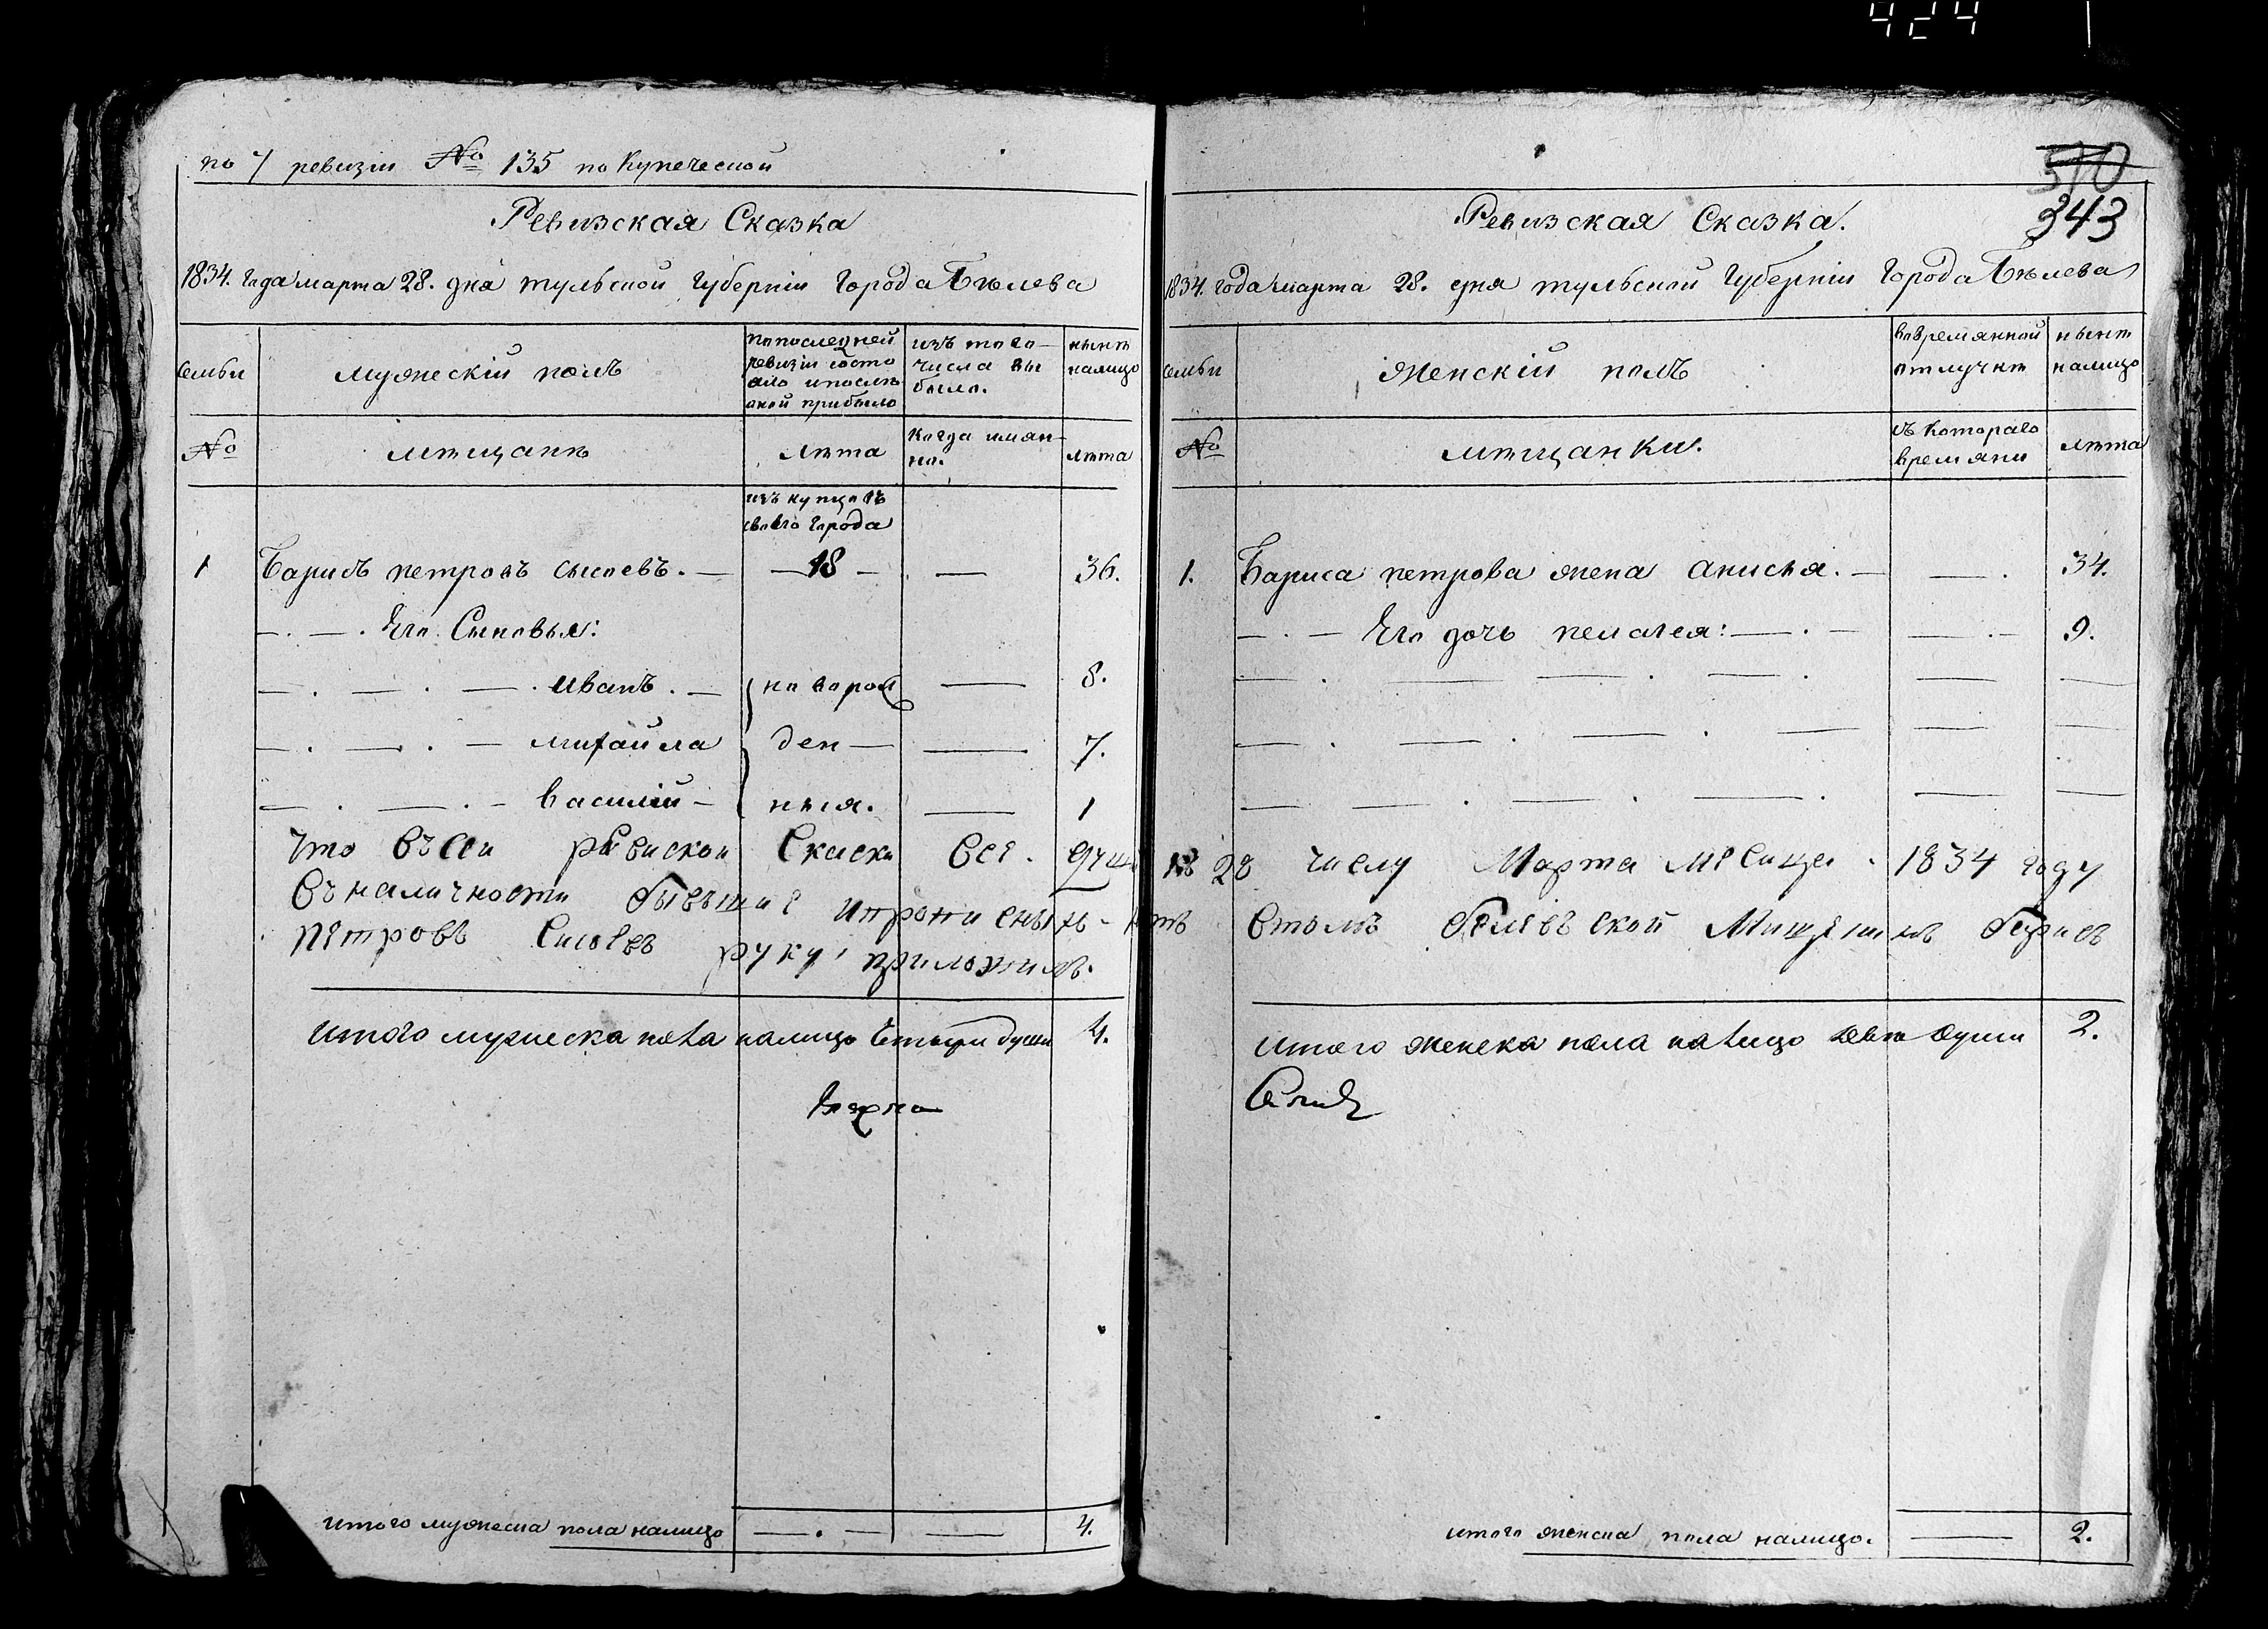 424
по 7 ревизіи № 135 по купеческой
Ревизская Сказка
1834. Года марта 28. дня тульской губерніи Города Бѣлева
семьи
мужескій полъ
по последней ревизіи состо
яло и после
оной прибыло
изъ того
числа вы
было.
нынѣ
налицо
№
мѣщанѣ
лѣта
когда имян-
но.
лѣта
изъ купцовъ
своего города
1 Барисъ петровъ сысоевъ. — 18 — — 36.
Его Сыновья:
Иванъ. — новорож — 8.
михайла ден — — 7.
василій — ныя. — 1
Что въ сеи ревискои Скаски все душ
въ наличности бывшие
петровъ Сысоевъ руку приложилъ.
Итого мужеска пола налицо Четыри души 4.
итого мужеска пола налицо — . — — 4.
510
343
Ревизская Сказка.
1834. года марта 28. дня тульской Губерніи Города Бѣлева
семьи
женскій полъ
во времянной
отлучкѣ
нынѣ
налицо
№
мѣщанки.
съ котораго
времяни
лѣта
1. Бариса петрова жена анисья. — — . 34.
Его дочь пелагея: — . — — . — 9.
28 числу Марта месица 1834 году
втомъ белевской Мищенинъ борисъ
Итого женска пола налицо двѣ души 2.
итого женска пола налицо. — 2.